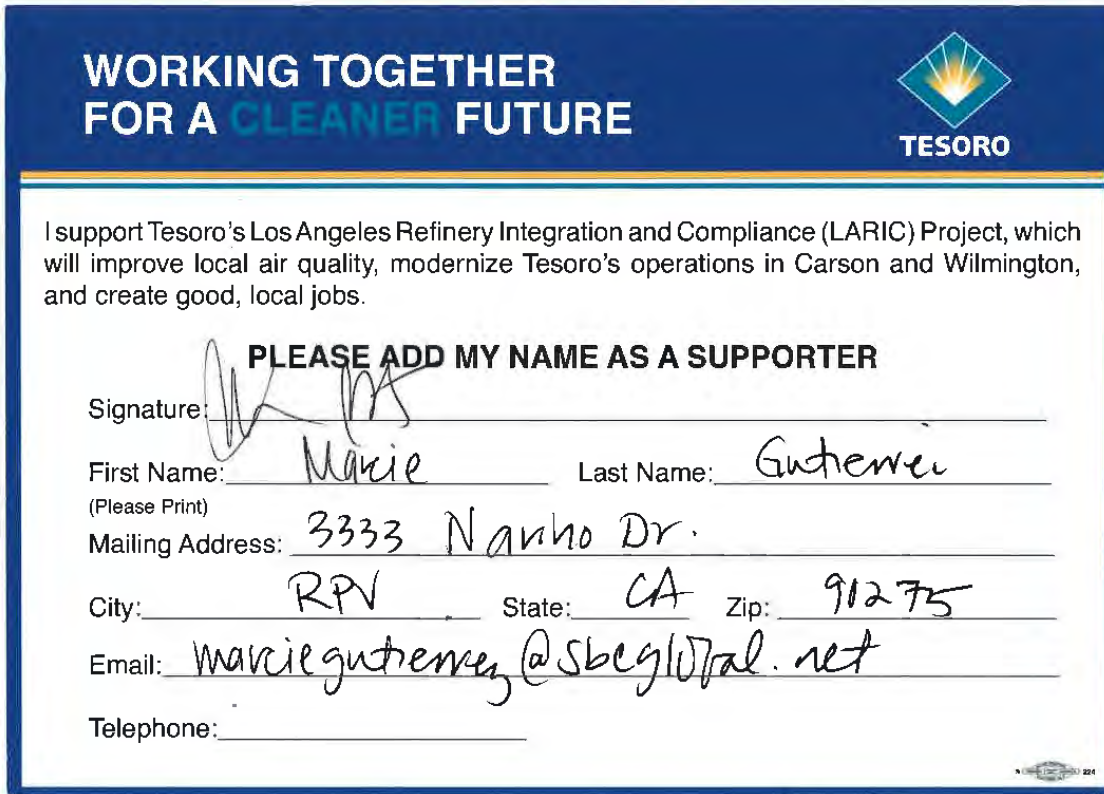 WORKING TOGETHER
FOR A CLEANER FUTURE
TESORO
I support Tesoro's Los Angeles Refinery Integration and Compliance (LARIC) Project, which
will improve local air quality, modernize Tesoro's operations in Carson and Wilmington,
and create good, local jobs.
PLEASE ADD MY NAME AS A SUPPORTER
Signature:
First Name: Marcie Last Name: Gutierrez
(Please Print)
Mailing Address: 3333 Dr.
City: RPV State: CA Zip: 91275
Email: marciegutierrez@sbcglobal.net
Telephone:
224